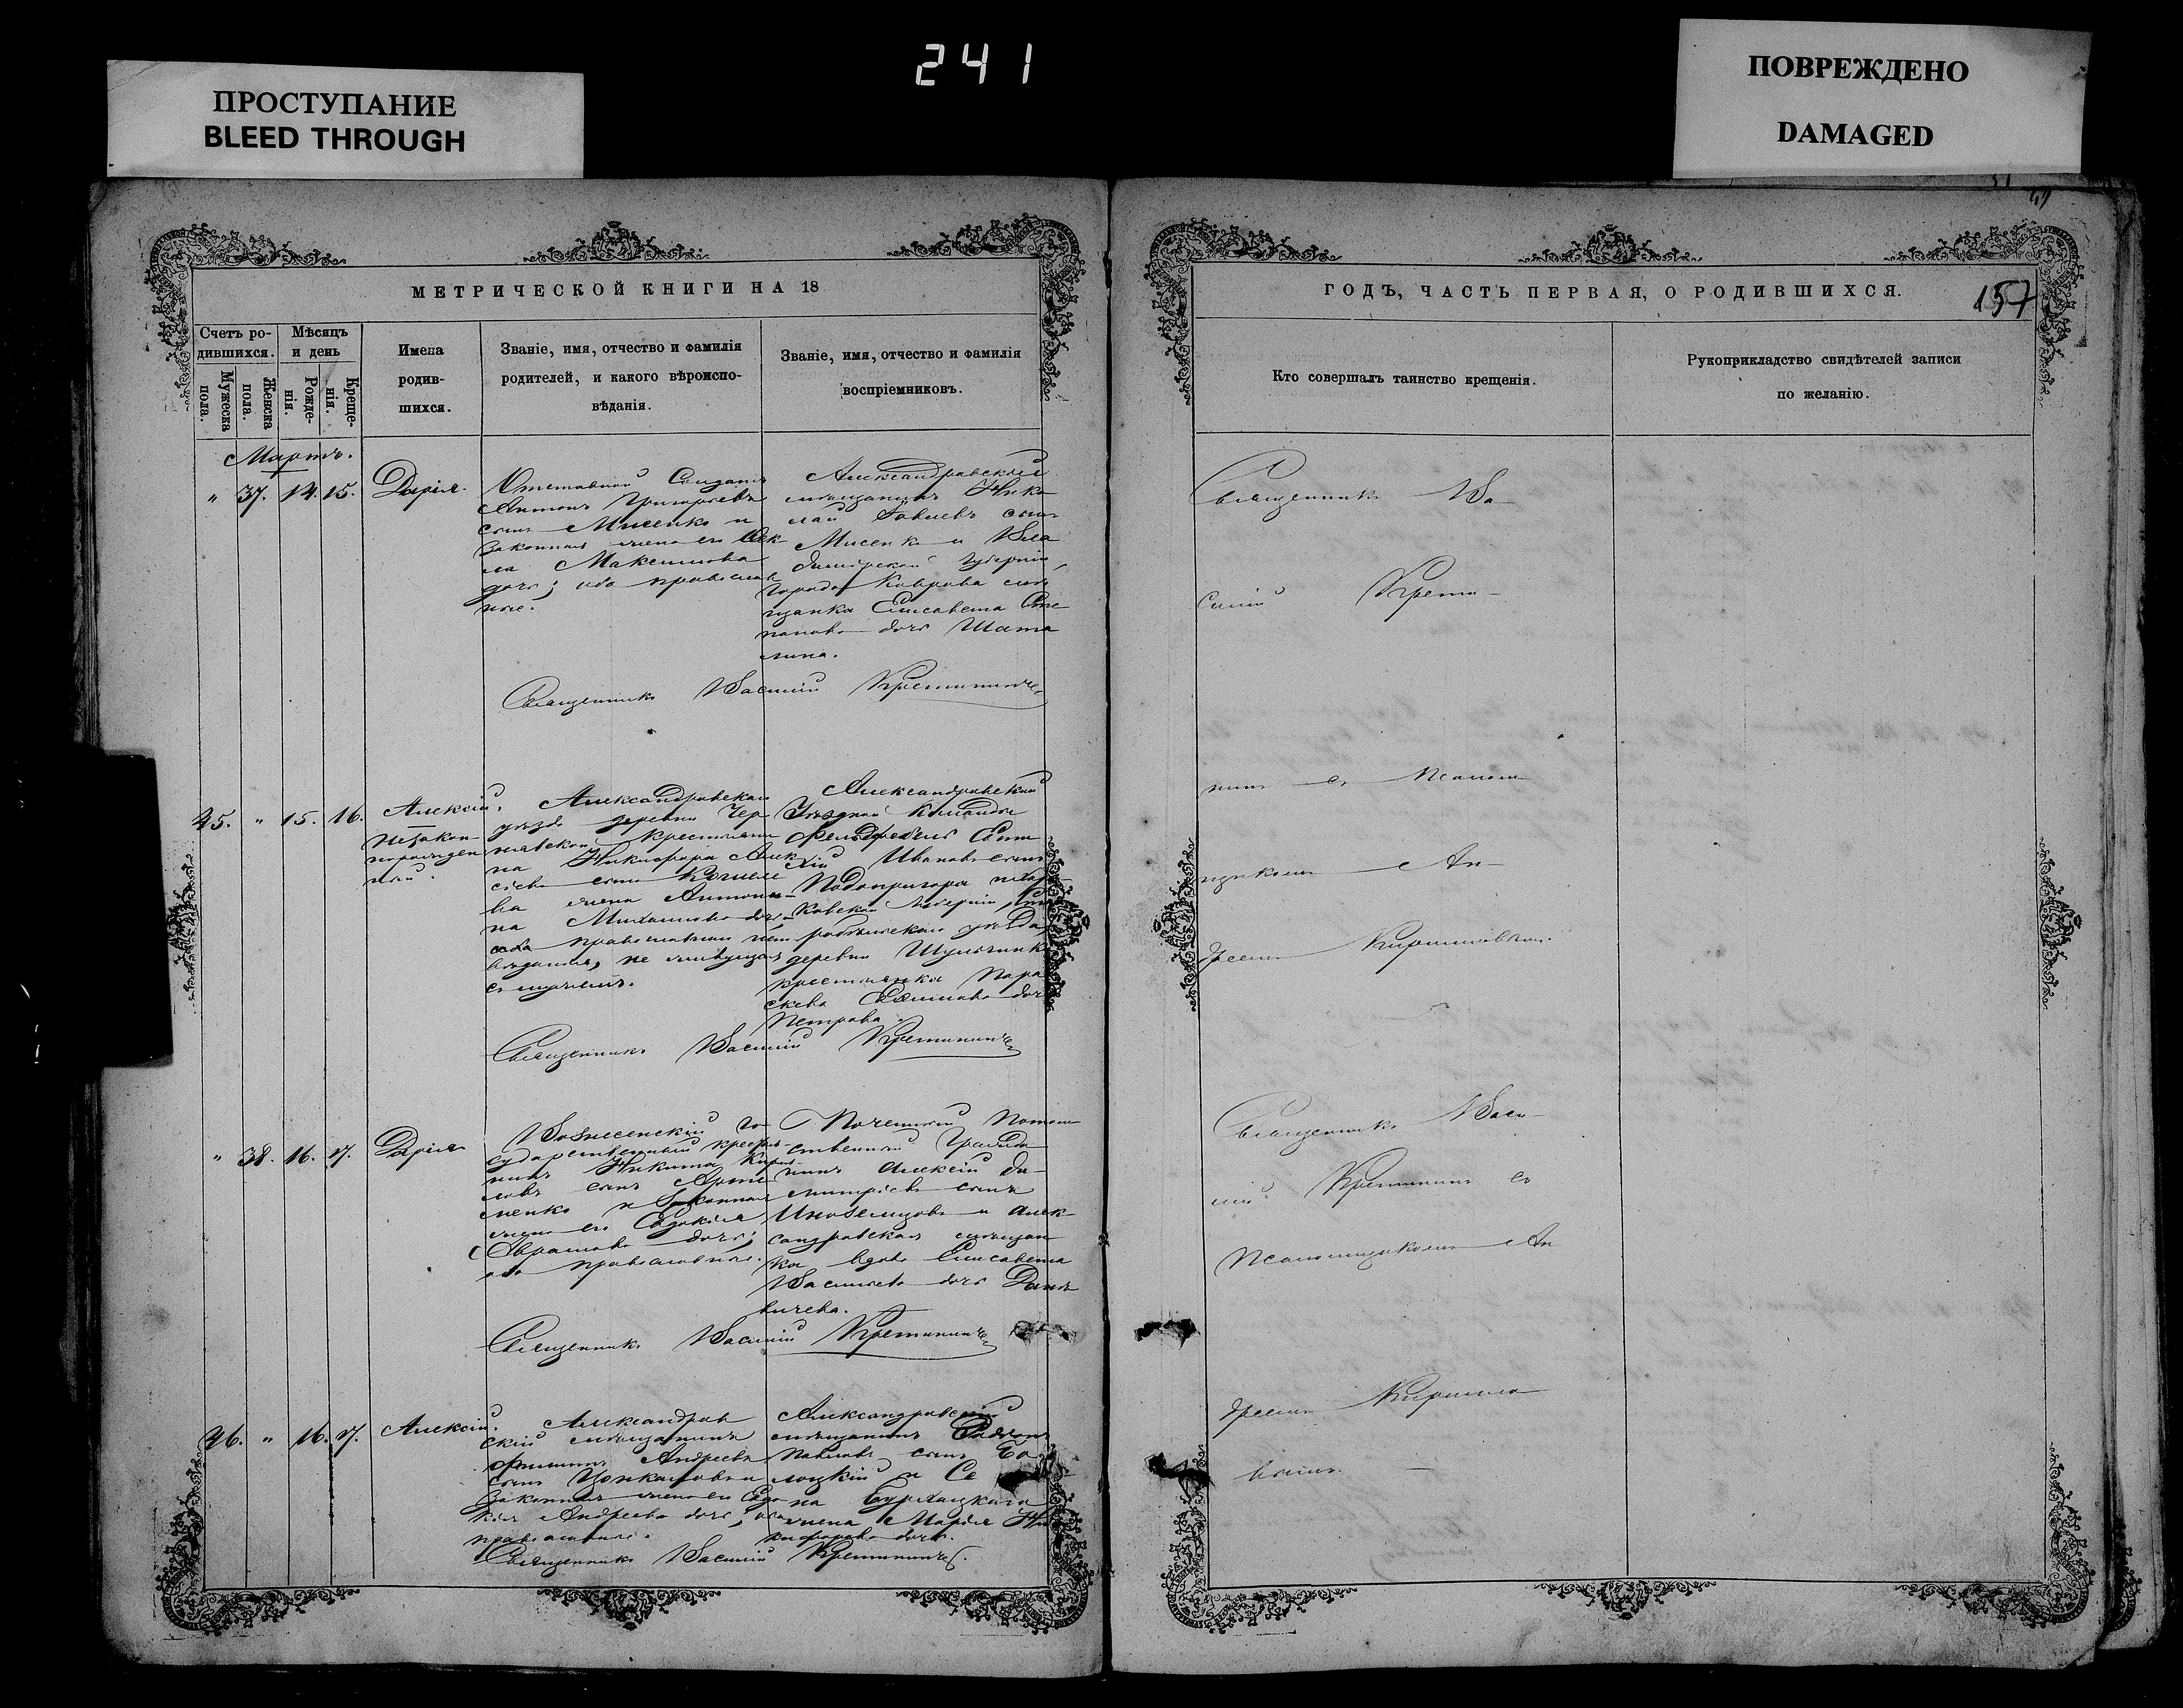 241
ПРОСТУПАНИЕ
BLEED THROUGH
ПОВРЕЖДЕНО
DAMAGED
МЕТРИЧЕСКОЙ КНИГИ НА 18
Счетъ ро-
дившихся.
Мужеска
пола.
Женска
пола.
Мѣсяцъ
и день
Рожде-
нія.
Креще-
нія.
Имена
родив-
шихся.
Званіе, имя, отчество и фамилія
родителей, и какого вѣроиспо-
вѣданія.
Званіе, имя, отчество и фамилія
воспріемниковъ.
Мартъ.
" 37. 14. 15. Дарія.
Отставной Солдатъ
Антонъ Григорьевъ
сынъ Мисенко и
законная жена его
Максимова
дочь; оба православ
ные.
Александровскій
мѣщанинъ Нико
лай сынъ
Мисенко и Вла
димірской губерніи,
города Коврова мѣ
щанка Елисавета Сте
панова дочь Шата
лина.
Священникъ Василій Кретининъ
45. " 15. 16. Алексій.
незакон
норожден
ный.
Александровскаго
уѣзда деревни Чер
нявской крестьяни
на Никифора Алек
сѣева сына
ва жена Антони
на Михаилова дочь
православнаго
вѣданія, не живущая
съ мужемъ.
Александровской
Уѣздной Команды
Фельдфебель
Ивановъ сынъ
Подопригора и Харь
ковской губерніи,
уѣзда,
деревни
крестьянка Пара
скева дочь
Петрова.
Священникъ Василій Кретининъ
" 38. 16. 17. Дарія
Вознесенскій го
сударственный крестья
нинъ Никита Кирил
ловъ сынъ Арте
менко и законная
жена его Евдокія
Аврамова дочь;
оба православные.
Почетный Потом
ственный Гражда
нинъ Алексій Ди
митріевъ сынъ
Иноземцовъ и Алек
сандровская мѣщан
ка вдова Елисавета
Васильева дочь Данъ
вичева.
Священникъ Василій Кретининъ
46. " 16. 17. Алексій.
Александров
скій мѣщанинъ
Филиппъ Андреевъ
сынъ и
законная жена его Евдо
кія Андреева дочь; оба
православные.
Александровскій
мѣщанинъ
Павловъ сынъ
и Се
на
жена Марія Ни
кифорова дочь.
Священникъ Василій Кретининъ
ГОДЪ, ЧАСТЬ ПЕРВАЯ, О РОДИВШИХСЯ.
157
Кто совершалъ таинство крещенія.
Рукоприкладство свидѣтелей записи
по желанію.
Священникъ Ва-
силій Крети-
нинъ съ Псалом
щикомъ Ан-
дреемъ Кирилловымъ.
Священникъ Васи-
лій Кретининъ съ
Псаломщикомъ Ан
дреемъ Кирилло
вымъ.